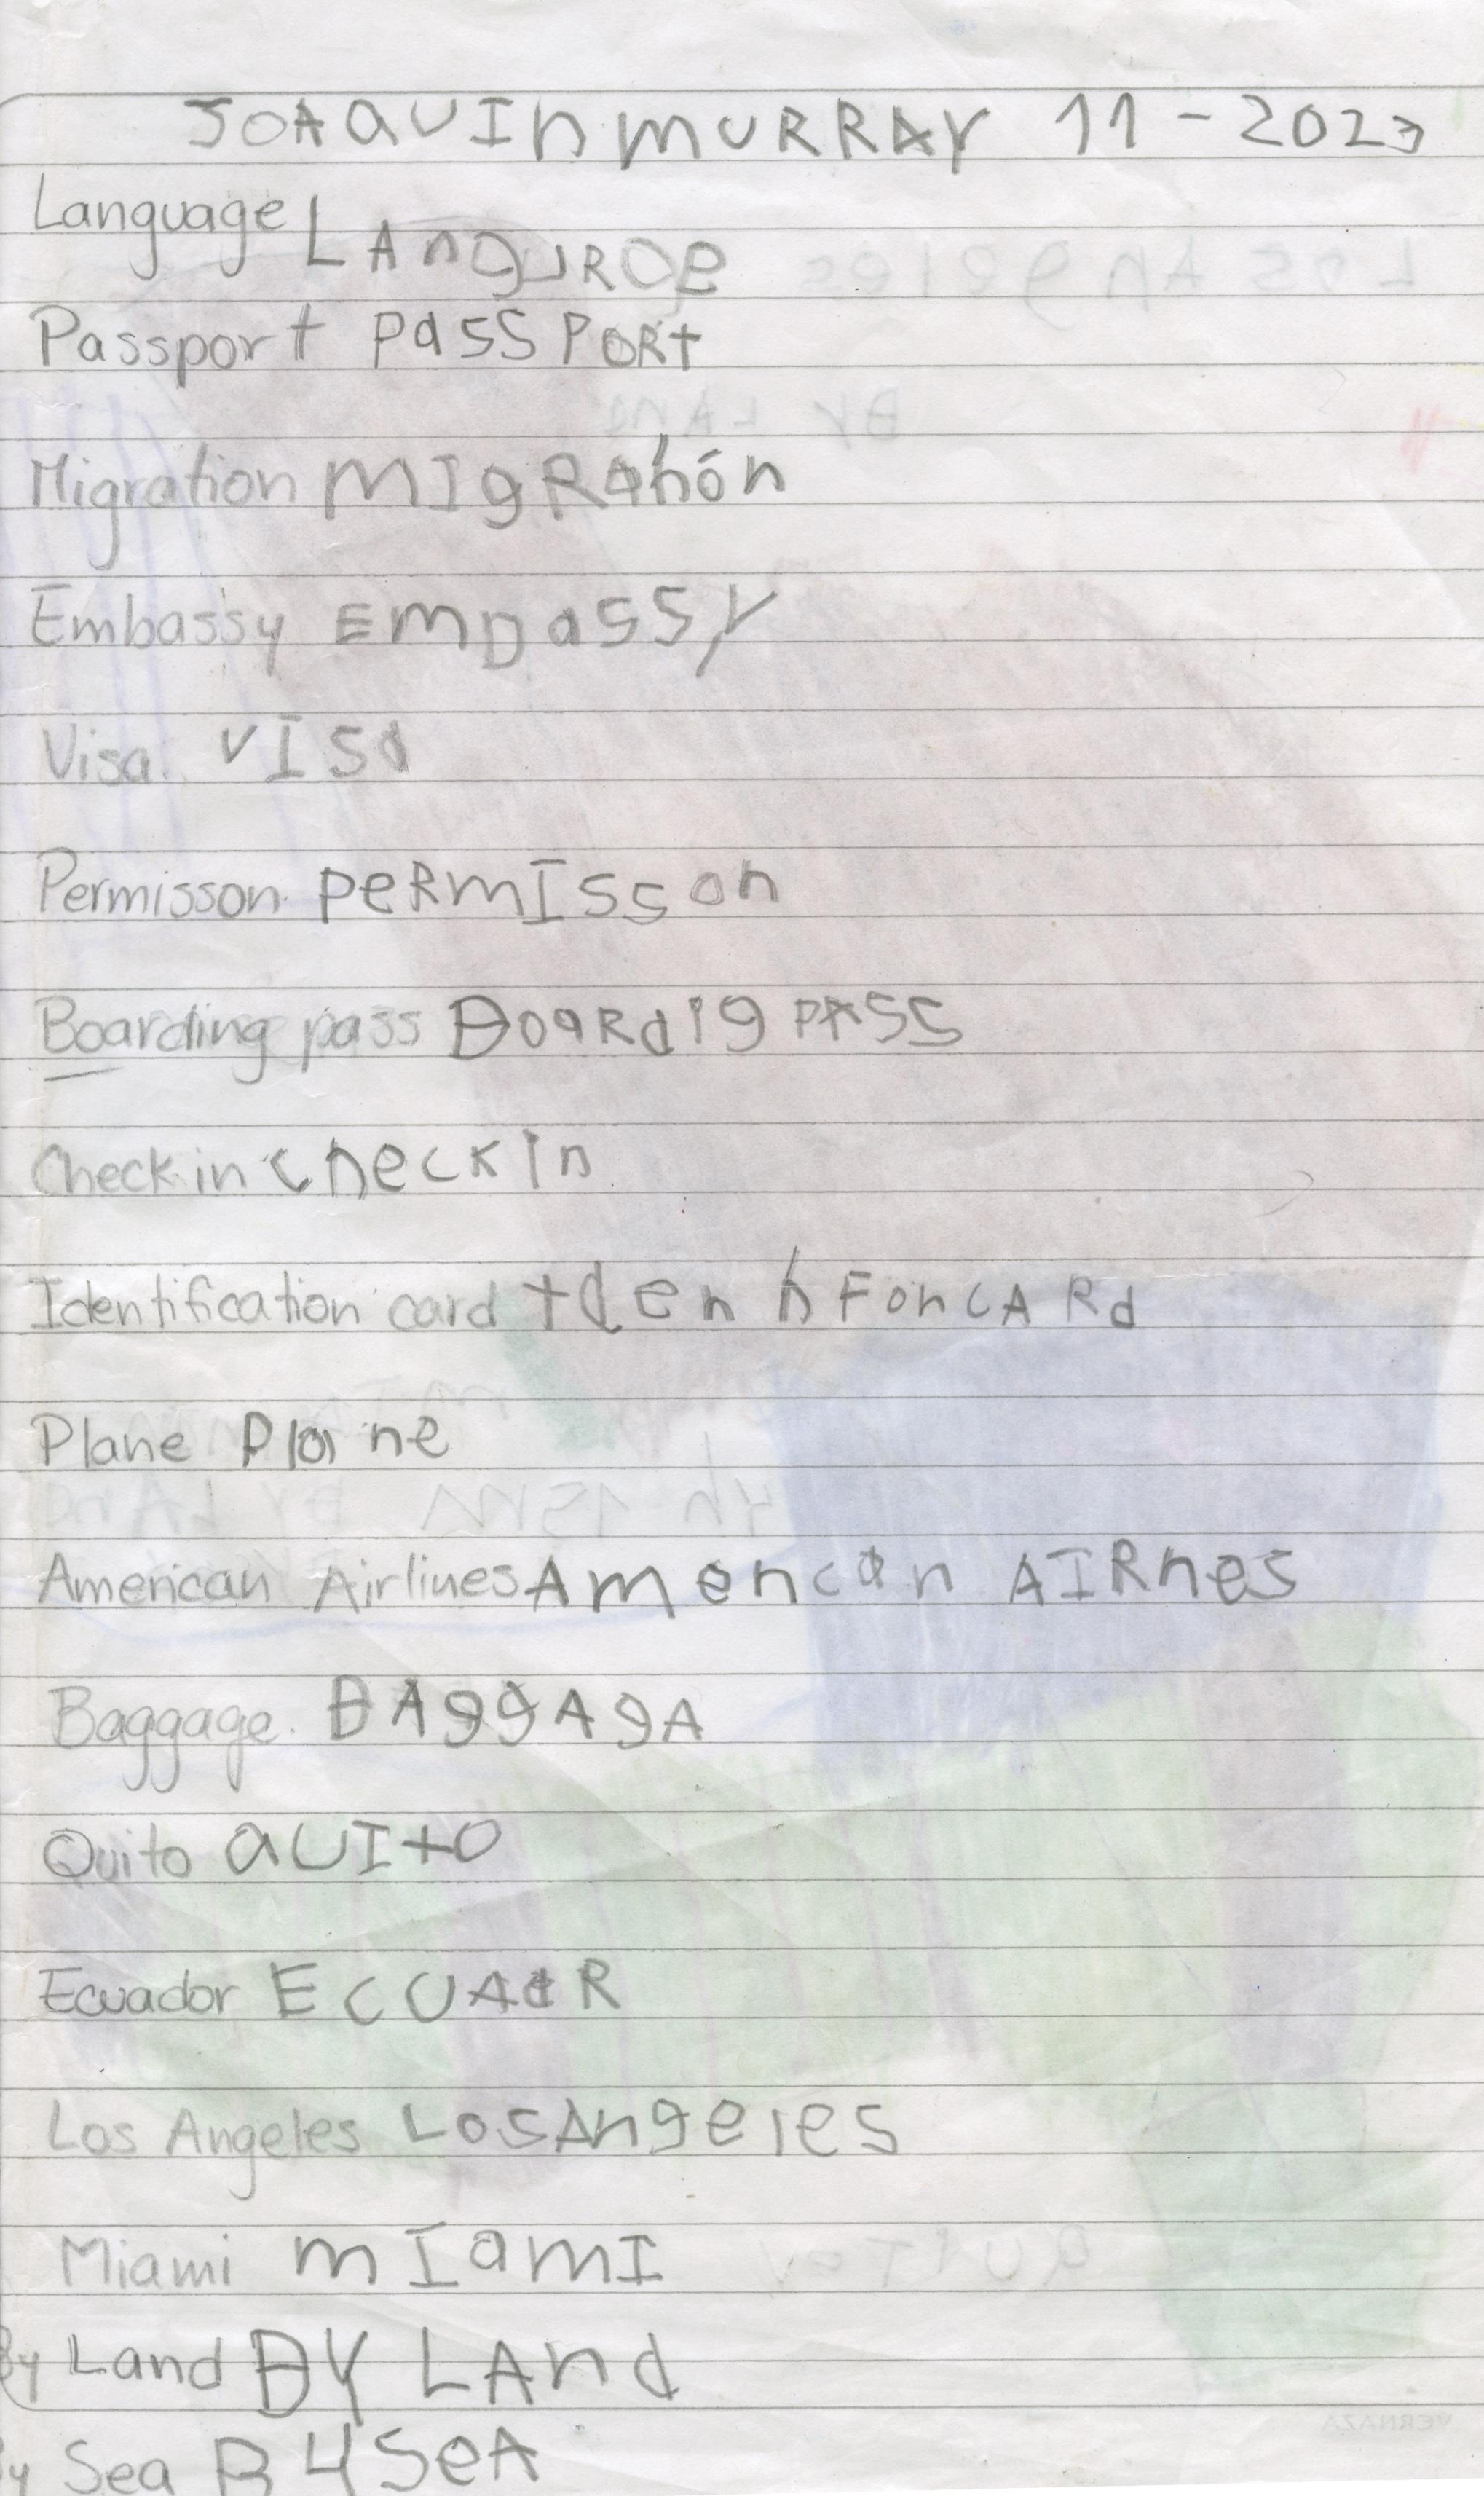 JOAQUIN MURRAY 11-2023
Language LAnguRge
Passport PaSSPORt
Migration MIgRahón
Embassy EmDaSSY
Visa. VISa
Permisson. PeRmISSon
Boarding pass BoaRdig PASS
Check in checkIn
Identification card tdenhFonCARd
Plane Plane
American Airlines Amencan AIRnes
Baggage. BAggAgA
Quito QUIto
Ecuador ECUAdR
Los Angeles LosAngeles
Miami mIamI
By Land BY LAnd
By Sea B4SeA